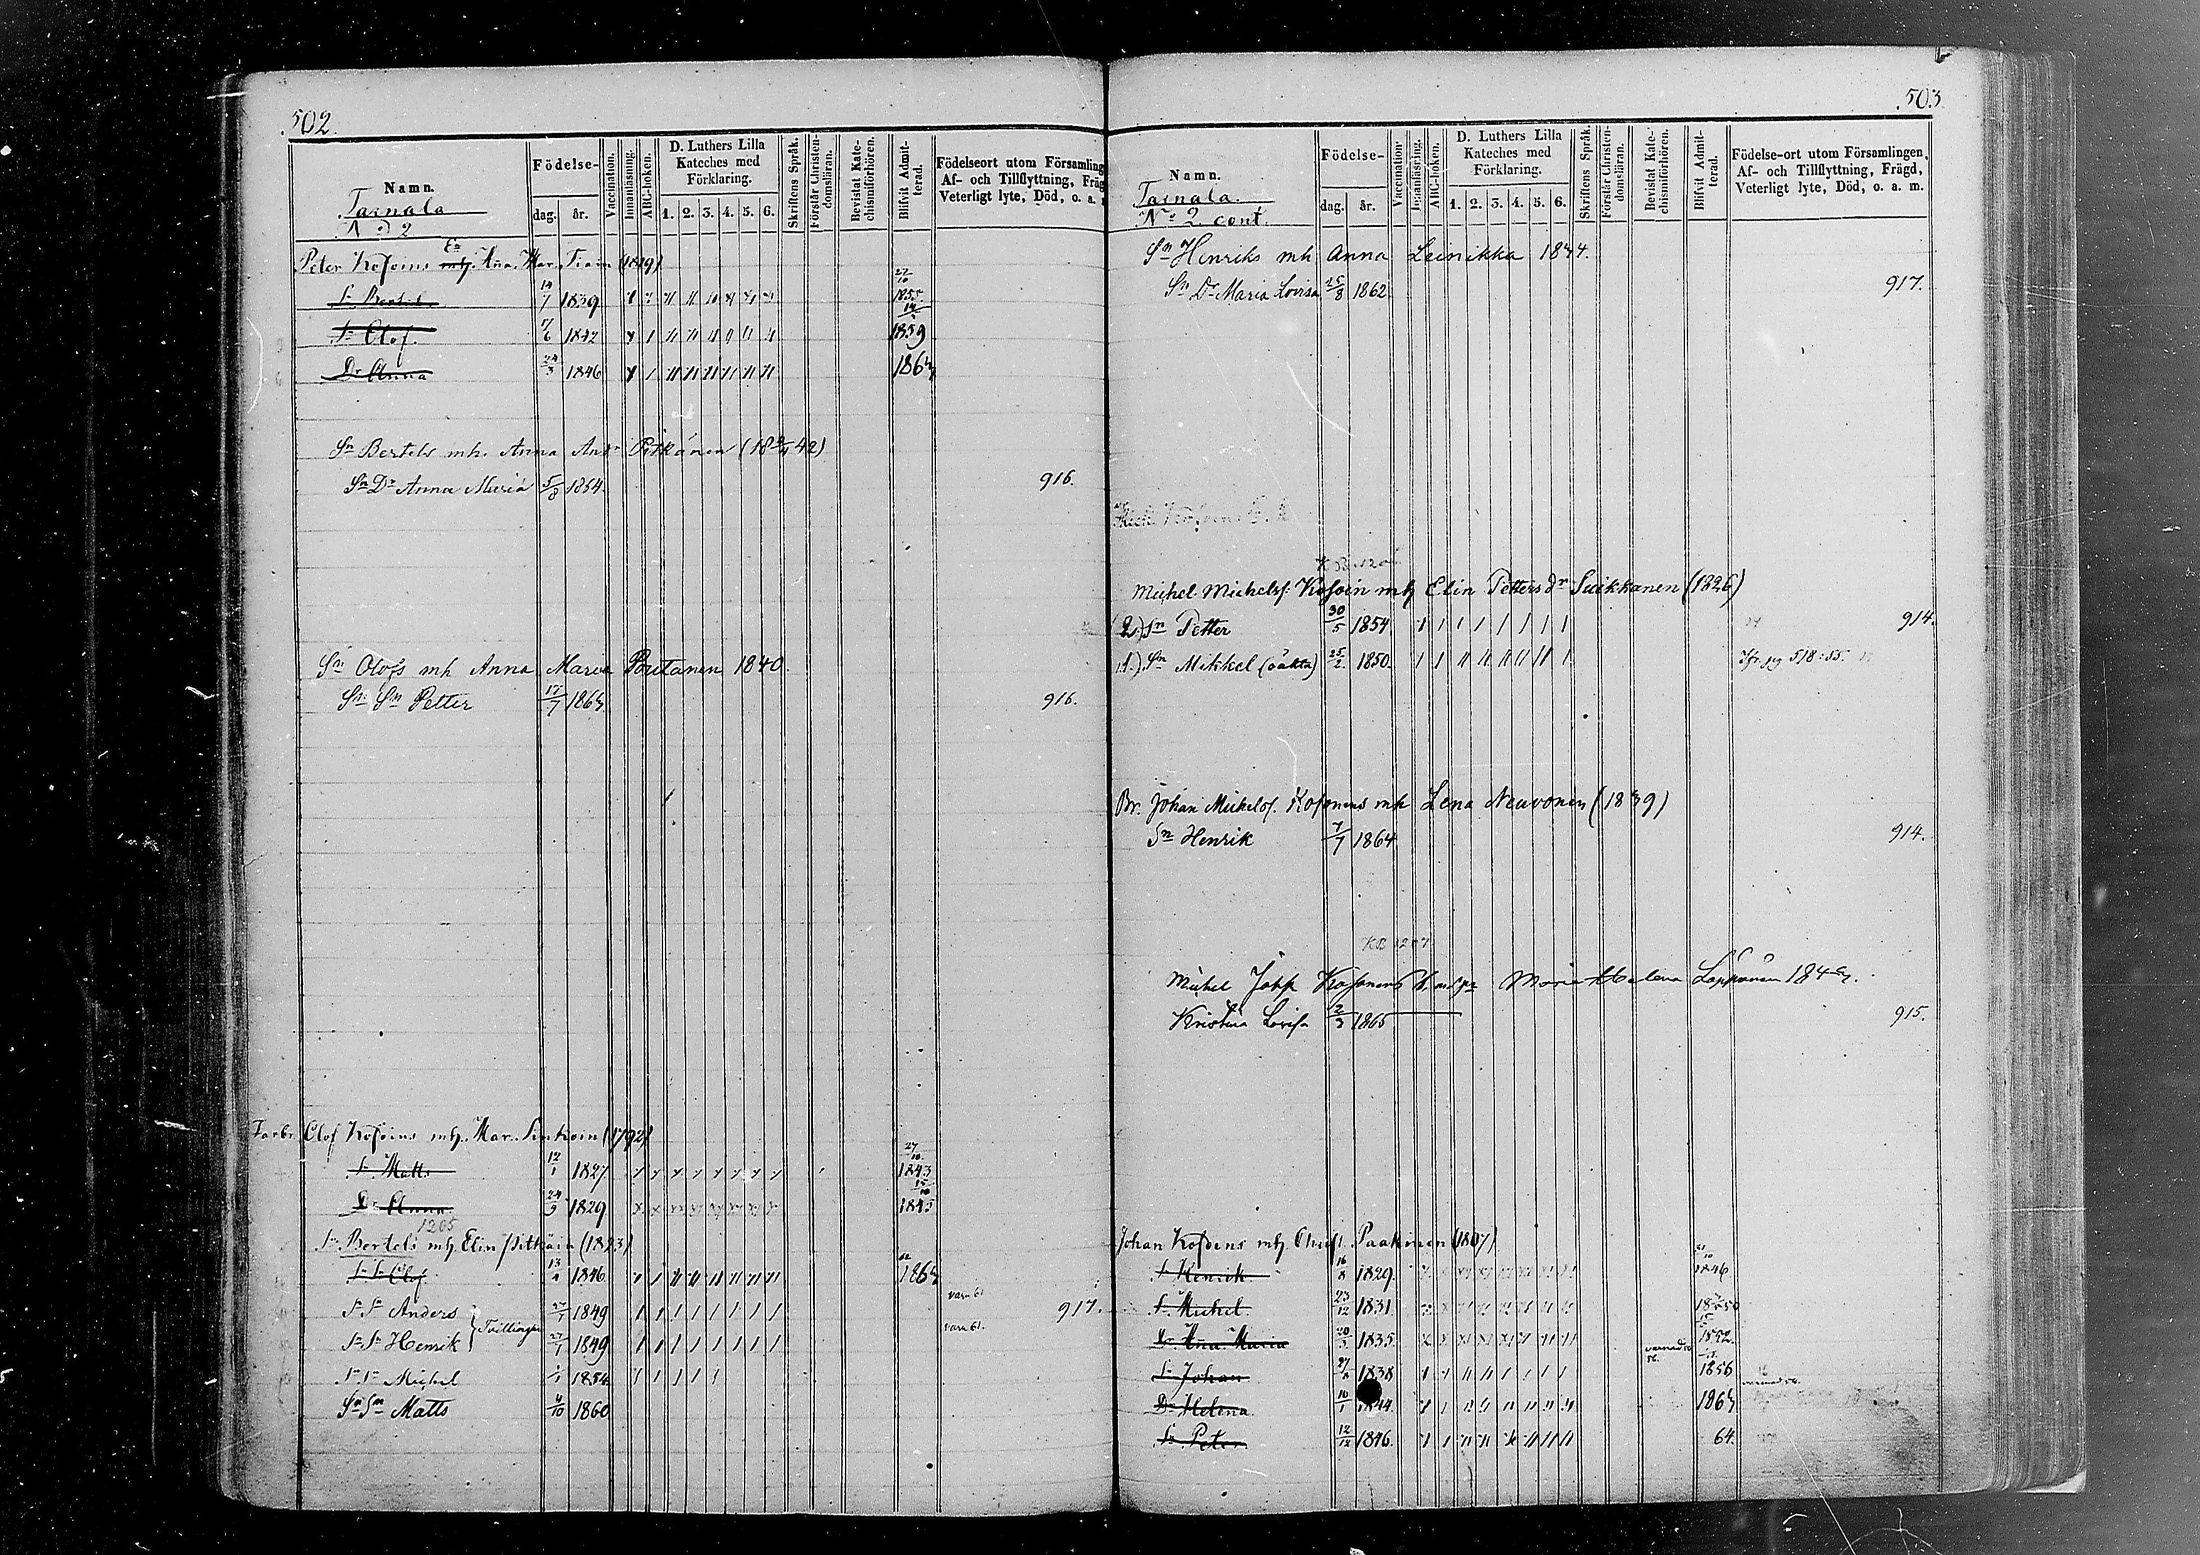 502.
Namn.
Tarnala
No 2
Födelse-
dag. år.
Vaccination.
Innanläsning.
ABC-boken.
D. Luthers Lilla Kateches med Förklaring.
1. 2. 3. 4. 5. 6.
Skriftens Språk.
Förstår Christendomsläran.
Bevistat Katechismiförhören.
Blifvit Admitterad.
Födelseort utom Församling
Af- och Tillflyttning, Fräg
Veterligt lyte, Död, o. a.
Peter Kosoins Anna Mar. (1819)
Sn Bertil 1839 1855
Sn Olof 7/6 1842 1859
Dr Anna 24/3 1846 1863
Sn Bertels mh. Anna And Pitkänen (18 42)
Sn Dr Anna Maria 5/8 1864. 916.
Sn Olofs mh Anna Maria Putanen 1840.
Sn Sn Petter 17/7 1863. 916.
Farbr. Olof Kosoins mh. Mar. Sinkoin (1792)
Sn Matts 12/1 1827 27/10 1843
Dr Anna 24/9 1829 15/10 1845
1205
Sn Bertels mh. Elin Pitkäin (1823)
Sn Sn Olof 13/4 1846 1863
Sn Sn Anders 27/7 1849 917.
Tvillingar
Sn Sn Henrik 27/7 1849
Sn Sn Michel 1854
Sn Sn Matts 4/10 1860
503
Namn.
Tarnala.
No 2 cont.
Födelse-
dag. år.
Vaccination.
Innanläsning.
ABC-boken.
D. Luthers Lilla Kateches med Förklaring.
1. 2. 3. 4. 5. 6.
Skriftens Språk.
Förstår Christendomsläran.
Bevistat Katechismiförhören.
Blifvit Admitterad.
Födelse-ort utom Församlingen,
Af- och Tillflyttning, Frägd,
Veterligt lyte, Död, o. a. m.
Sn Henriks mh Anna Leinikka 1844.
Sn Dr Maria Lovisa 25/8 1862 917.
Michel Michelss: Kosoin mh Elin Petters dr Suikkanen (1826)
(2.) Sn Petter 30/5 1854 914.
(1.) Sn Mikkel (oäkta) 25/2 1850. pg 518:55.
Br. Johan Michelss. Kosonens mh Lena Neuvonen (1839)
Sn Henrik 7/7 1864 914.
KB 1207
Michel Joh Kosonens Maria Helena Lapponen 184
Kristina Lovisa 2/3 1865 915.
Johan Kosoins mh Christ. Paakinen (1807)
Sn Henrik 16/8 1829. 1846
Sn Michel 23/12 1831 1850
Dr Anna Maria 20/3 1835 1852.
Sn Johan 1838 1856
Dr Helena 10/1 1844. 1863
Sn Peter 12/12 1846. 64.